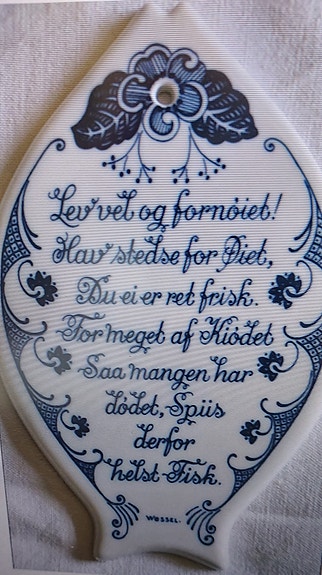 Lev vel og fornöiet!
Hav stedse for Øiet,
Du ei er ret frisk.
For meget af Kiödet
Saa mangen har
dödet, Spiis
derfor
helst Fisk.
WESSEL.